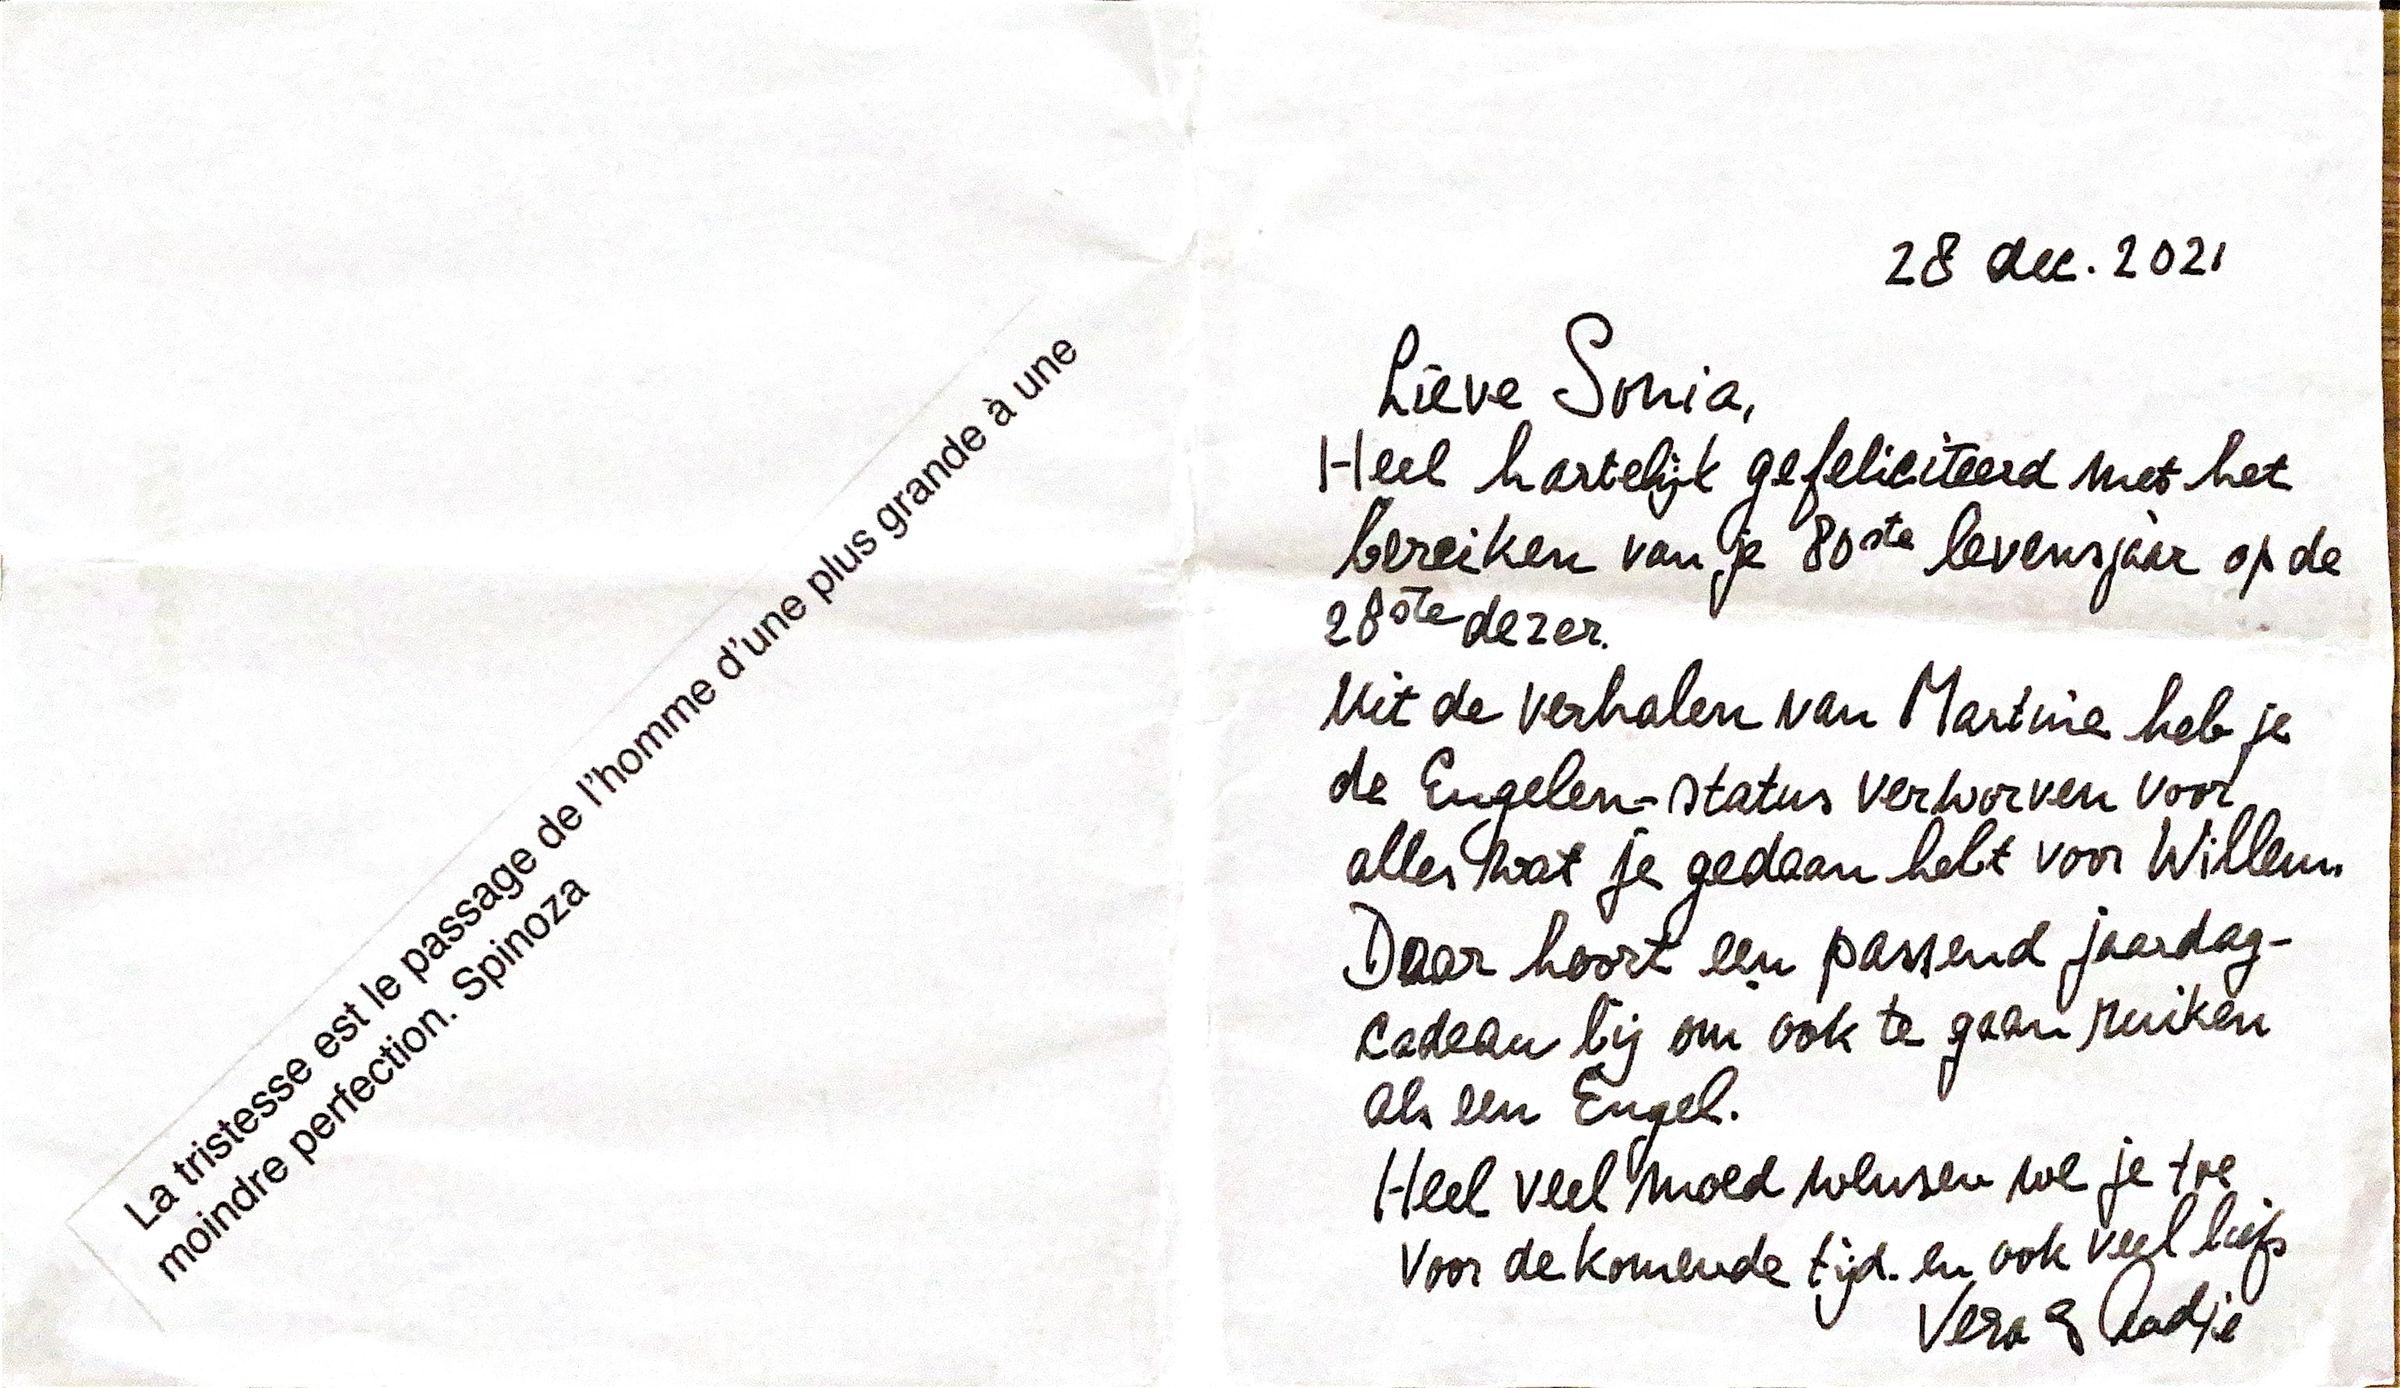 La tristesse est le passage de l'homme d'une plus grande à une
moindre perfection. Spinoza
28 dec. 2021
Lieve Sonia,
Heel hartelijk gefeliciteerd met het
bereiken van je 80ste levensjaar op de
28ste dezer.
Uit de verhalen van Martine heb je
de Engelen-status verworven voor
alles wat je gedaan hebt voor Willem.
Daar hoort een passend jaardag-
cadeau bij om ook te gaan ruiken
als een Engel.
Heel veel moed wensen we je toe
voor de komende tijd. en ook veel liefs
Vera &